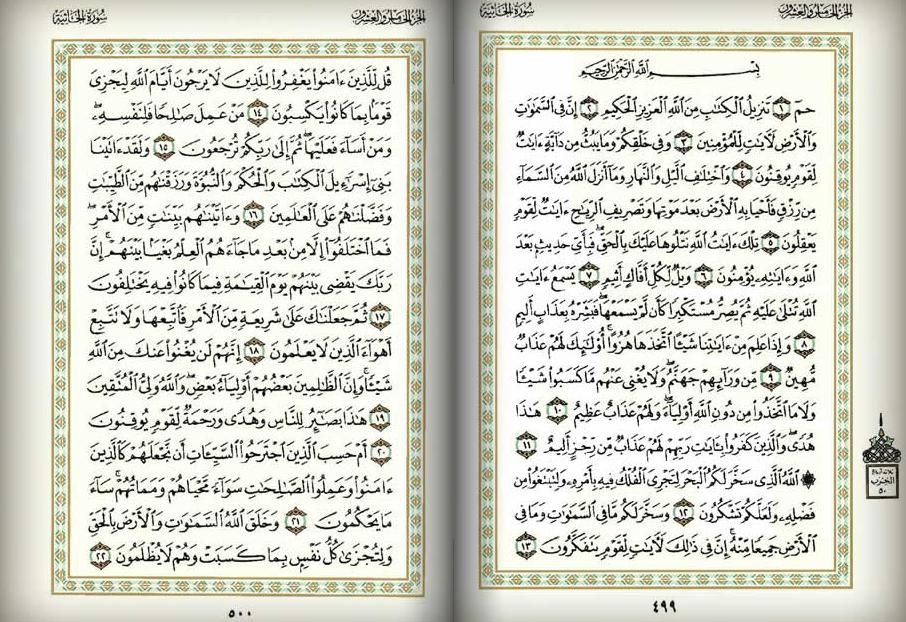 سُورَةُ الجَاثِيَةِ
الجُزْءُ الخَامِسُ وَالعِشْرُونَ
بِسْمِ ٱللَّهِ ٱلرَّحْمَٰنِ ٱلرَّحِيمِ
حمٓ ١ تَنزِيلُ ٱلْكِتَٰبِ مِنَ ٱللَّهِ ٱلْعَزِيزِ ٱلْحَكِيمِ ٢ إِنَّ فِى ٱلسَّمَٰوَٰتِ
وَٱلْأَرْضِ لَءَايَٰتٍ لِّلْمُؤْمِنِينَ ٣ وَفِى خَلْقِكُمْ وَمَا يَبُثُّ مِن دَآبَّةٍ ءَايَٰتٌ
لِّقَوْمٍ يُوقِنُونَ ٤ وَٱخْتِلَٰفِ ٱلَّيْلِ وَٱلنَّهَارِ وَمَآ أَنزَلَ ٱللَّهُ مِنَ ٱلسَّمَآءِ
مِن رِّزْقٍ فَأَحْيَا بِهِ ٱلْأَرْضَ بَعْدَ مَوْتِهَا وَتَصْرِيفِ ٱلرِّيَٰحِ ءَايَٰتٌ لِّقَوْمٍ
يَعْقِلُونَ ٥ تِلْكَ ءَايَٰتُ ٱللَّهِ نَتْلُوهَا عَلَيْكَ بِٱلْحَقِّ ۖ فَبِأَىِّ حَدِيثٍۭ بَعْدَ
ٱللَّهِ وَءَايَٰتِهِۦ يُؤْمِنُونَ ٦ وَيْلٌ لِّكُلِّ أَفَّاكٍ أَثِيمٍ ٧ يَسْمَعُ ءَايَٰتِ
ٱللَّهِ تُتْلَىٰ عَلَيْهِ ثُمَّ يُصِرُّ مُسْتَكْبِرًا كَأَن لَّمْ يَسْمَعْهَا ۖ فَبَشِّرْهُ بِعَذَابٍ أَلِيمٍ
٨ وَإِذَا عَلِمَ مِنْ ءَايَٰتِنَا شَيْـًٔا ٱتَّخَذَهَا هُزُوًا ۚ أُو۟لَٰٓئِكَ لَهُمْ عَذَابٌ
مُّهِينٌ ٩ مِّن وَرَآئِهِمْ جَهَنَّمُ ۖ وَلَا يُغْنِى عَنْهُم مَّا كَسَبُوا۟ شَيْـًٔا
وَلَا مَا ٱتَّخَذُوا۟ مِن دُونِ ٱللَّهِ أَوْلِيَآءَ ۖ وَلَهُمْ عَذَابٌ عَظِيمٌ ١٠ هَٰذَا
هُدًى ۖ وَٱلَّذِينَ كَفَرُوا۟ بِـَٔايَٰتِ رَبِّهِمْ لَهُمْ عَذَابٌ مِّن رِّجْزٍ أَلِيمٌ ١١
۞ ٱللَّهُ ٱلَّذِى سَخَّرَ لَكُمُ ٱلْبَحْرَ لِتَجْرِىَ ٱلْفُلْكُ فِيهِ بِأَمْرِهِۦ وَلِتَبْتَغُوا۟ مِن
فَضْلِهِۦ وَلَعَلَّكُمْ تَشْكُرُونَ ١٢ وَسَخَّرَ لَكُم مَّا فِى ٱلسَّمَٰوَٰتِ وَمَا فِى
ٱلْأَرْضِ جَمِيعًا مِّنْهُ ۚ إِنَّ فِى ذَٰلِكَ لَءَايَٰتٍ لِّقَوْمٍ يَتَفَكَّرُونَ ١٣
٤٩٩
الحزب
٥٠
سُورَةُ الجَاثِيَةِ
الجُزْءُ الخَامِسُ وَالعِشْرُونَ
قُل لِّلَّذِينَ ءَامَنُوا۟ يَغْفِرُوا۟ لِلَّذِينَ لَا يَرْجُونَ أَيَّامَ ٱللَّهِ لِيَجْزِىَ
قَوْمًۢا بِمَا كَانُوا۟ يَكْسِبُونَ ١٤ مَنْ عَمِلَ صَٰلِحًا فَلِنَفْسِهِۦ ۖ
وَمَنْ أَسَآءَ فَعَلَيْهَا ۖ ثُمَّ إِلَىٰ رَبِّكُمْ تُرْجَعُونَ ١٥ وَلَقَدْ ءَاتَيْنَا
بَنِىٓ إِسْرَٰٓءِيلَ ٱلْكِتَٰبَ وَٱلْحُكْمَ وَٱلنُّبُوَّةَ وَرَزَقْنَٰهُم مِّنَ ٱلطَّيِّبَٰتِ
وَفَضَّلْنَٰهُمْ عَلَى ٱلْعَٰلَمِينَ ١٦ وَءَاتَيْنَٰهُم بَيِّنَٰتٍ مِّنَ ٱلْأَمْرِ ۖ
فَمَا ٱخْتَلَفُوٓا۟ إِلَّا مِنۢ بَعْدِ مَا جَآءَهُمُ ٱلْعِلْمُ بَغْيًۢا بَيْنَهُمْ ۚ إِنَّ
رَبَّكَ يَقْضِى بَيْنَهُمْ يَوْمَ ٱلْقِيَٰمَةِ فِيمَا كَانُوا۟ فِيهِ يَخْتَلِفُونَ
١٧ ثُمَّ جَعَلْنَٰكَ عَلَىٰ شَرِيعَةٍ مِّنَ ٱلْأَمْرِ فَٱتَّبِعْهَا وَلَا تَتَّبِعْ
أَهْوَآءَ ٱلَّذِينَ لَا يَعْلَمُونَ ١٨ إِنَّهُمْ لَن يُغْنُوا۟ عَنكَ مِنَ ٱللَّهِ
شَيْـًٔا ۚ وَإِنَّ ٱلظَّٰلِمِينَ بَعْضُهُمْ أَوْلِيَآءُ بَعْضٍ ۖ وَٱللَّهُ وَلِىُّ ٱلْمُتَّقِينَ
١٩ هَٰذَا بَصَٰٓئِرُ لِلنَّاسِ وَهُدًى وَرَحْمَةٌ لِّقَوْمٍ يُوقِنُونَ
٢٠ أَمْ حَسِبَ ٱلَّذِينَ ٱجْتَرَحُوا۟ ٱلسَّيِّـَٔاتِ أَن نَّجْعَلَهُمْ كَٱلَّذِينَ
ءَامَنُوا۟ وَعَمِلُوا۟ ٱلصَّٰلِحَٰتِ سَوَآءً مَّحْيَاهُمْ وَمَمَاتُهُمْ ۚ سَآءَ
مَا يَحْكُمُونَ ٢١ وَخَلَقَ ٱللَّهُ ٱلسَّمَٰوَٰتِ وَٱلْأَرْضَ بِٱلْحَقِّ
وَلِتُجْزَىٰ كُلُّ نَفْسٍۭ بِمَا كَسَبَتْ وَهُمْ لَا يُظْلَمُونَ ٢٢
٥٠٠